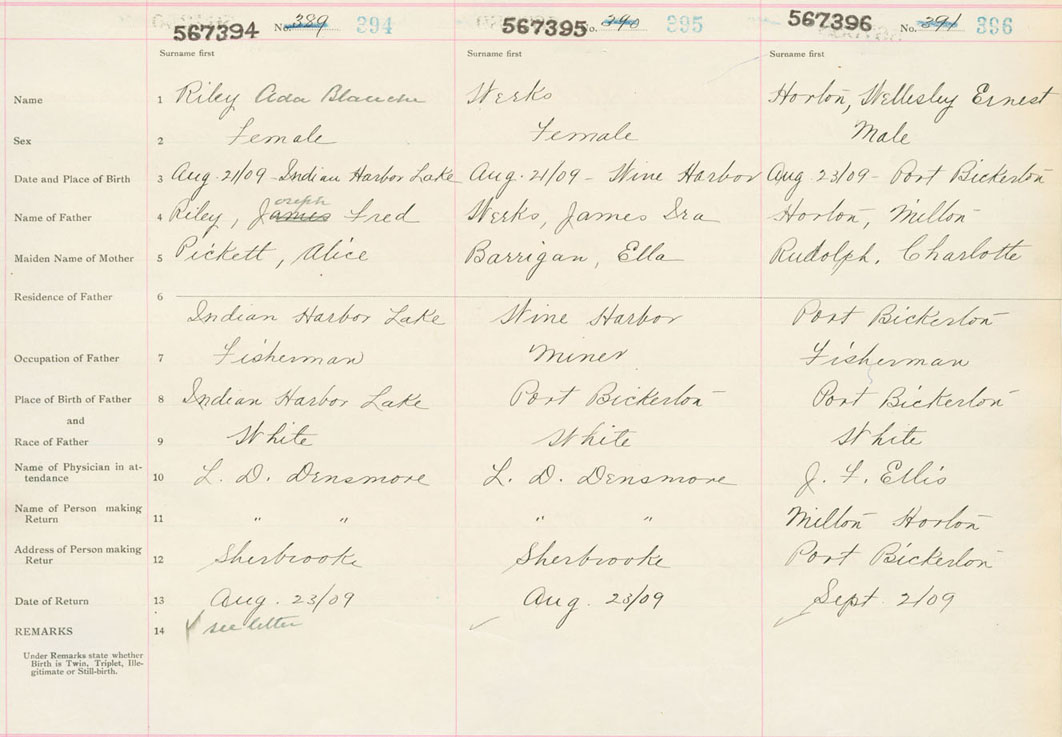 567394 No. 389 394 567395 No. 390 395 567396 No. 391 396
Surname first Surname first Surname first
Name 1 Riley Ada Blanche Werks Horton, Wellesley Ernest
Sex 2 Female Female Male
Date and Place of Birth 3 Aug. 21/09 - Indian Harbor Lake Aug. 21/09 - Wine Harbor Aug 23/09 - Port Bickerton
Name of Father 4 Riley, James Joseph Fred Werks, James Ira Horton, Milton
Maiden Name of Mother 5 Pickett, Alice Barrigan, Ella Rudolph, Charlotte
Residence of Father 6
Indian Harbor Lake Wine Harbor Port Bickerton
Occupation of Father 7 Fisherman Miner Fisherman
Place of Birth of Father 8 Indian Harbor Lake Port Bickerton Port Bickerton
and
Race of Father 9 White White White
Name of Physician in at-
tendance 10 L. D. Densmore L. D. Densmore J. F. Ellis
Name of Person making
Return 11 " " " " Milton Horton
Address of Person making
Retur 12 Sherbrooke Sherbrooke Port Bickerton
Date of Return 13 Aug. 23/09 Aug. 23/09 Sept. 2/09
REMARKS 14 see letter
Under Remarks state whether
Birth is Twin, Triplet, Ille-
gitimate or Still-birth.